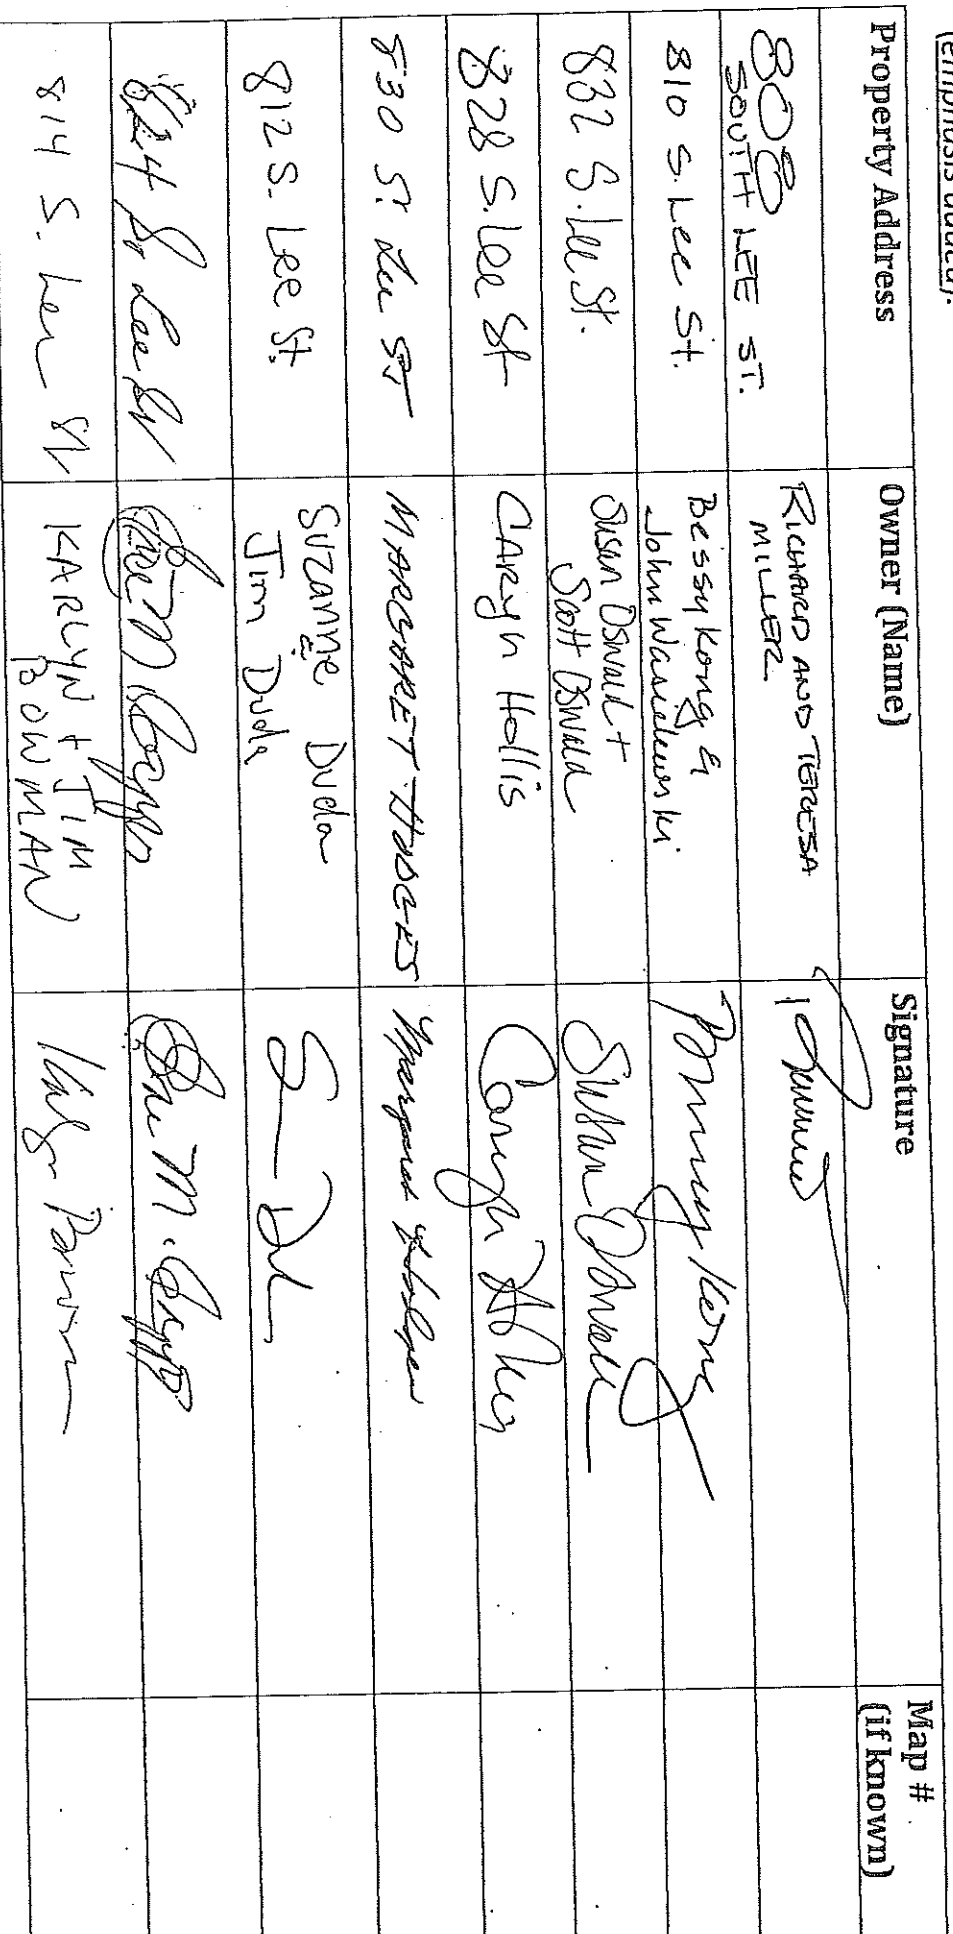 (emphasis added).
Property Address Owner (Name) Signature Map #
(if known)
808
SOUTH LEE ST. RICHARD AND TERESA
MILLER
810 S. Lee St. Bessy Kong &
John
832 S. Lee St. Susan Oswald +
Scott Oswald Susan Oswald
828 S. Lee St Caryn Hollis Caryn Hollis
830 S. Lee ST MARGARET HODGES Margaret Hodges
812 S. Lee St. Suzanne Duda
Jim Duda
824 So Lee St
814 S. Lee St KARLYN + JIM
BOWMAN